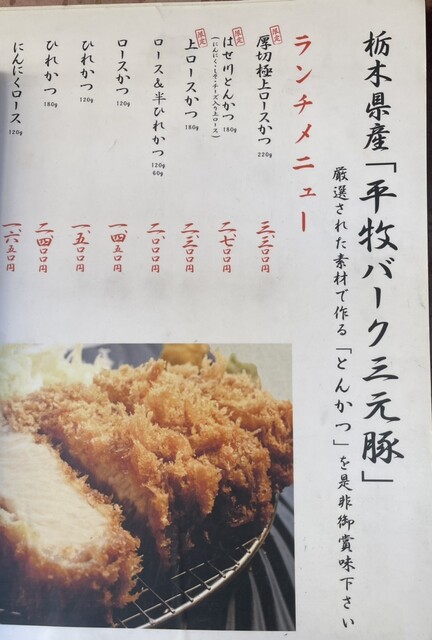 栃木県産「平牧バーク三元豚」
厳選された素材で作る「とんかつ」を是非御賞味下さい
ランチメニュー
限定
厚切極上ロースかつ 220g 三、三〇〇円
限定
はせ川とんかつ 180g 二、七〇〇円
(にんにく・しそ・チーズ入り上ロース)
限定
上ロースかつ 180g 二、三〇〇円
ロース&半ひれかつ 120g 60g 二、〇〇〇円
ロースかつ 120g 一、四五〇円
ひれかつ 120g 一、五〇〇円
ひれかつ 180g 二、四〇〇円
にんにくロース 120g 一、六五〇円